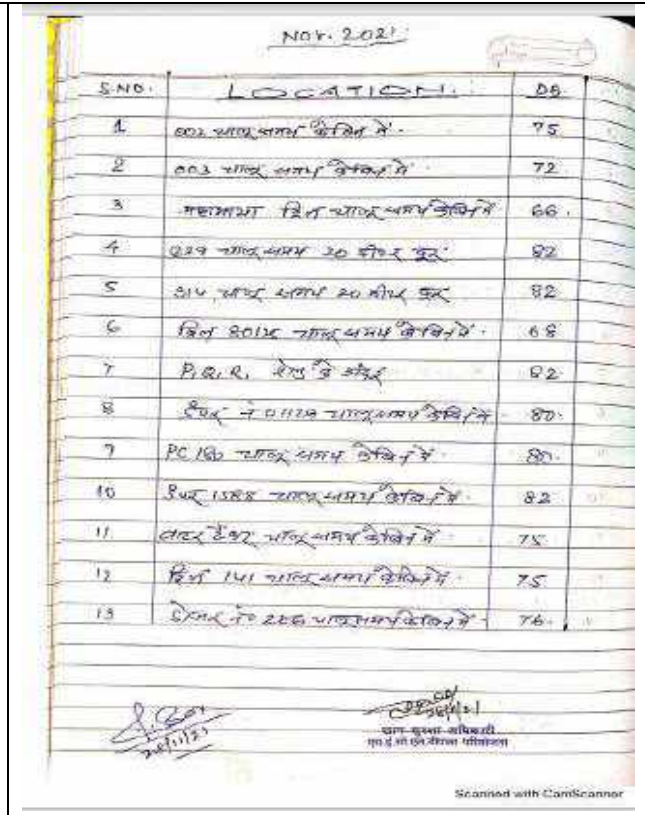 Nov. 2021
S.NO. LOCATION DB
1 002 चालू समय केबिन में. 75
2 003 चालू समय केबिन में. 72
3 महामाया ड्रिल चालू समय केबिन में 66.
4 829 चालू समय 20 मीटर दूर 82
5 चालू समय 20 मीटर दूर 82
6 ड्रिल चालू समय केबिन में. 68
7 P, Q, R, के अंदर 82
8 डंपर नं 01128 चालू समय केबिन में 80.
9 PC 180 चालू समय केबिन में. 80.
10 डंपर 1588 चालू समय केबिन में. 82
11 वाटर टैंकर चालू समय केबिन में 75
12 ड्रिल 141 चालू समय केबिन में. 75
13 डोजर नं 226 चालू समय केबिन में. 76.
28/11/21
खान सुरक्षा अधिकारी
परियोजना
Scanned with CamScanner